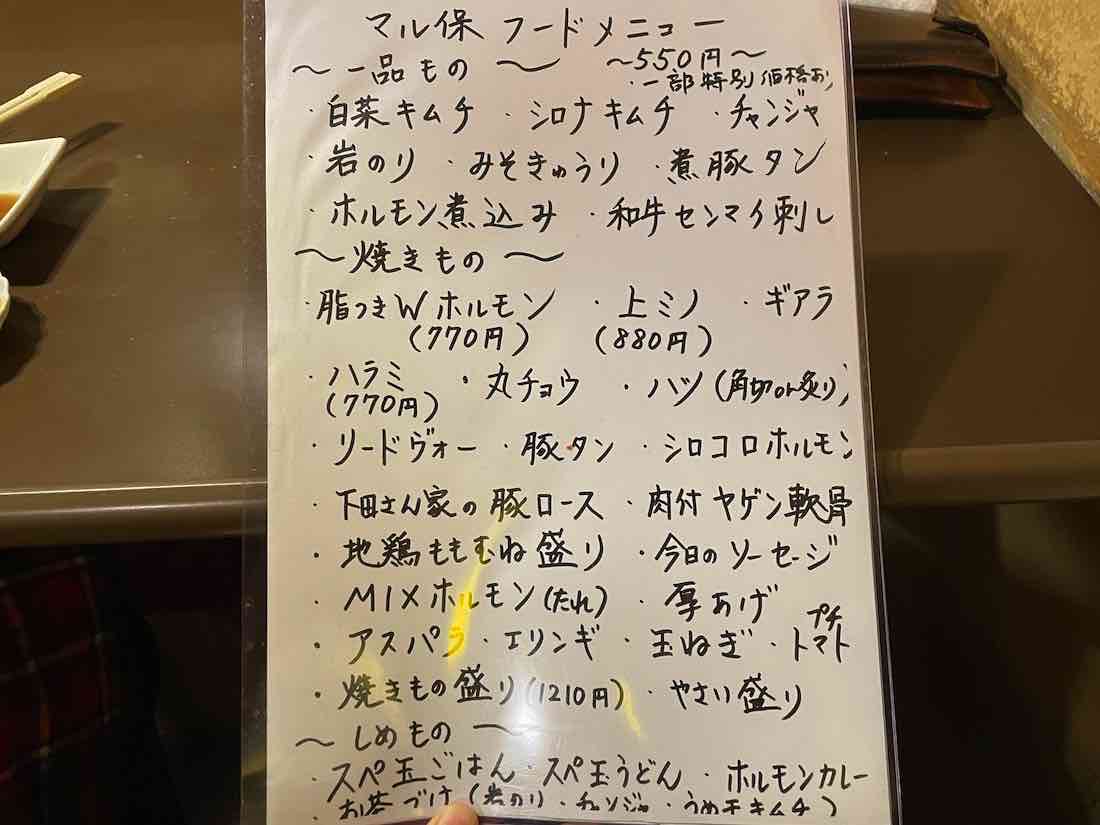 マル保 フードメニュー
〜一品もの〜 〜550円〜
・一部特別価格あり
・白菜キムチ ・シロナキムチ ・チャンジャ
・岩のり ・みそきゅうり ・煮豚タン
・ホルモン煮込み ・和牛センマイ刺し
〜焼きもの〜
・脂つきWホルモン ・上ミノ ・ギアラ
(770円) (880円)
・ハラミ ・丸チョウ ・ハツ(角切or炙り)
(770円)
・リードヴォー ・豚タン ・シロコロホルモン
・下田さん家の豚ロース ・肉付ヤゲン軟骨
・地鶏ももむね盛り ・今日のソーセージ
・MIXホルモン(たれ) ・厚あげ
・アスパラ ・エリンギ ・玉ねぎ ・プチトマト
・焼きもの盛り(1210円) ・やさい盛り
〜しめもの〜
・スペ玉ごはん ・スペ玉うどん ・ホルモンカレー
・お茶づけ(岩のり・チャンジャ・うめ干キムチ)